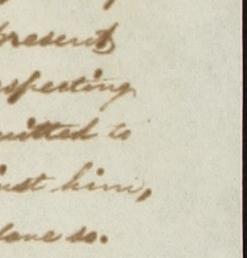 present
especting
mitted to
inst him,
done so.